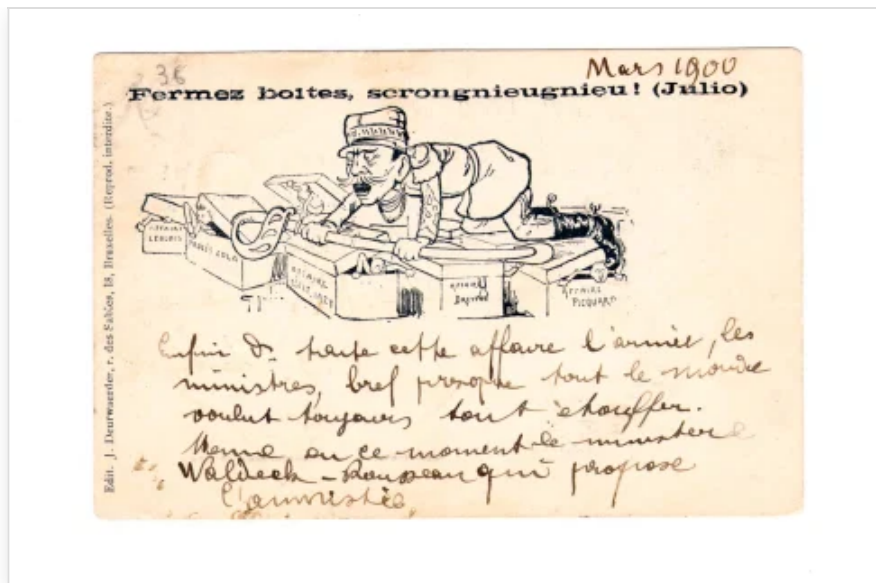 36
Mars 1900
Fermez boîtes, scrongnieugnieu! (Julio)
Edit. J. Deurwaerder, r. des Sables, 18, Bruxelles. (Reprod. interdite.)
AFFAIRE
LEBLOIS
PROCÈS ZOLA
AFFAIRE
AFFAIRE
DREYFUS
AFFAIRE
PICQUART
Enfin D. toute cette affaire l'armée, les
ministres, bref presque tout le monde
voulut toujours tout étouffer.
Même en ce moment le ministère
Waldeck-Rousseau qui propose
l'amnistie